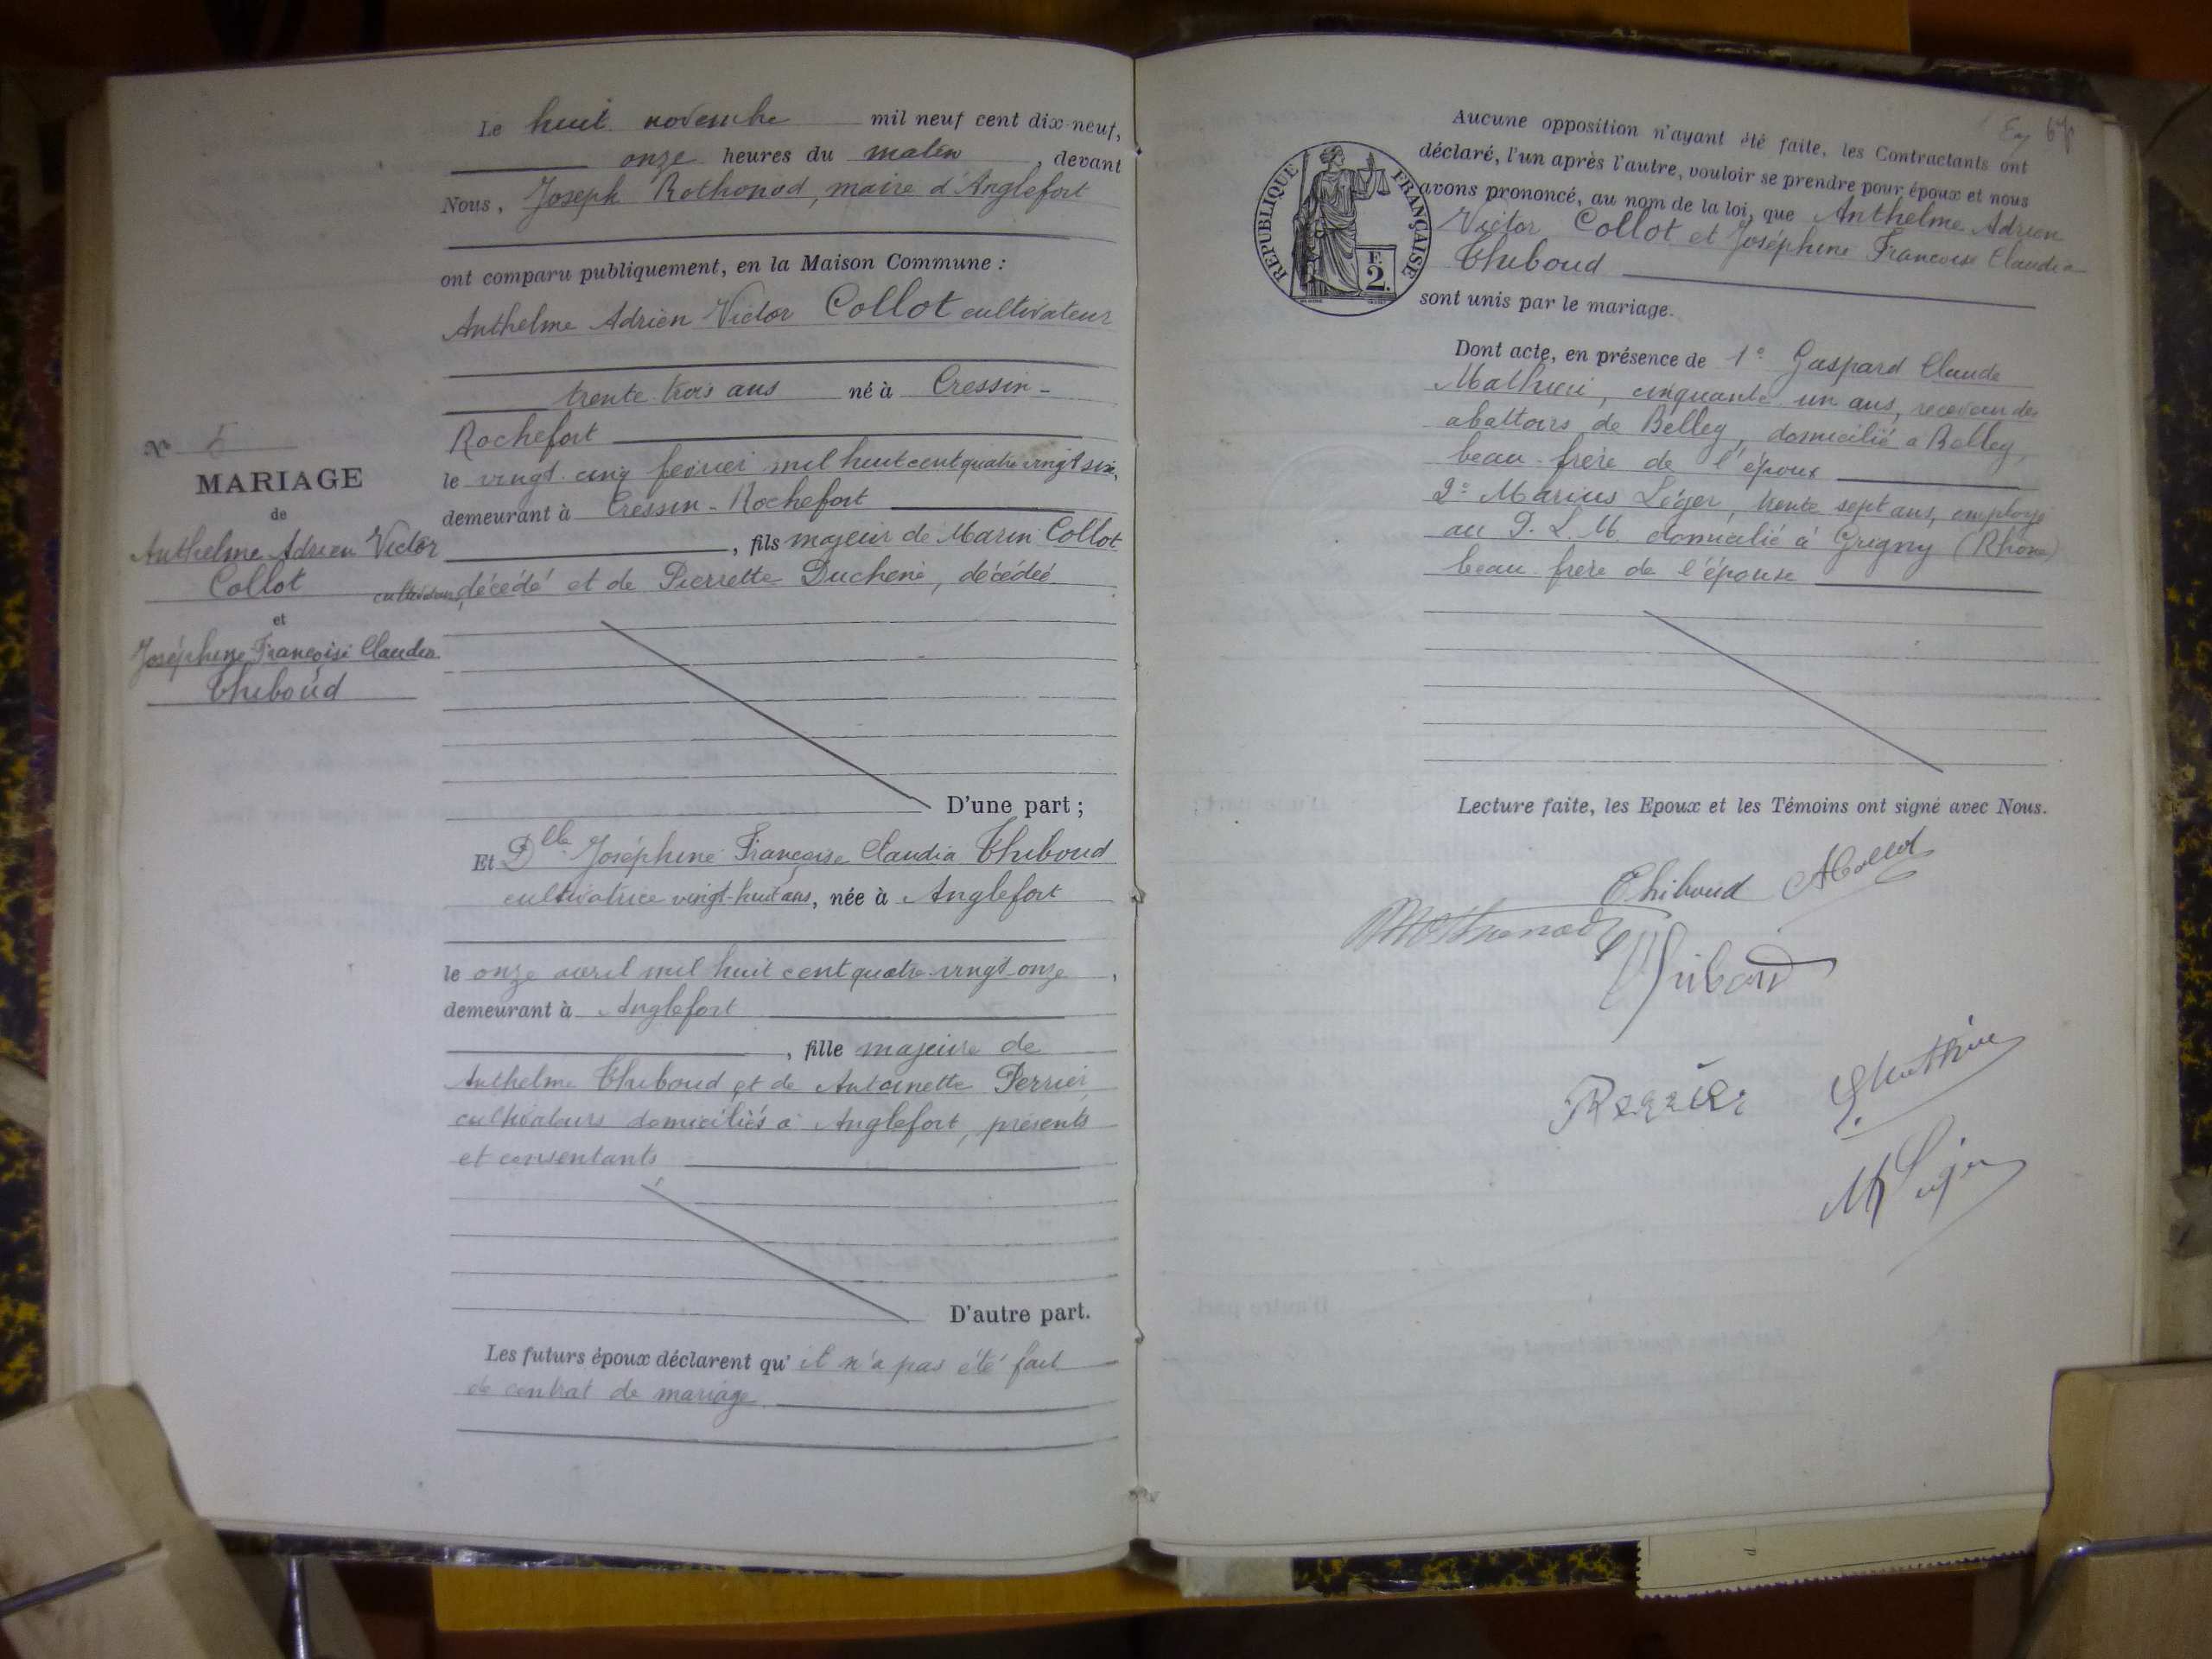 Le huit novembre mil neuf cent dix-neuf,
onze heures du matin, devant
Nous, Joseph Rothonod, maire d'Anglefort
ont comparu publiquement, en la Maison Commune :
Anthelme Adrien Victor Collot cultivateur
trente trois ans né à Cressin-
Rochefort
le vingt cinq février mil huit cent quatre vingt six,
demeurant à Cressin-Rochefort
, fils majeur de Marin Collot
cultivateurs, décédé et de Pierrette Duchene, décédée
D'une part ;
Et Dlle Joséphine Françoise Claudia Thiboud
cultivatrice vingt-huit ans, née à Anglefort
le onze avril mil huit cent quatre-vingt-onze,
demeurant à Anglefort
, fille majeure de
Anthelme Thiboud et de Antoinette Perrier,
cultivateurs domiciliés à Anglefort, présents
et consentants
D'autre part.
Les futurs époux déclarent qu' il n'a pas été fait
de contrat de mariage
N°
MARIAGE
de
Anthelme Adrien Victor
Collot
et
Joséphine Françoise Claudia
Thiboud
67
Aucune opposition n'ayant été faite, les Contractants ont
déclaré, l'un après l'autre, vouloir se prendre pour époux et nous
avons prononcé, au nom de la loi, que Anthelme Adrien
Victor Collot et Joséphine Francoise Claudia
Thiboud
sont unis par le mariage.
RÉPUBLIQUE FRANÇAISE
F.
2.
Dont acte, en présence de 1° Gaspard Claude
Mathieu, cinquante un ans, receveur des
abattoirs de Belley, domicilié a Belley,
beau-frère de l'époux
2° Marius Léger, trente sept ans, employé
au P. L. M. domicilié à Grigny (Rhône)
beau-frère de l'épouse
Lecture faite, les Epoux et les Témoins ont signé avec Nous.
Thiboud ACollot
Rothonod
Thiboud
Perrier
Mathieu
M Léger